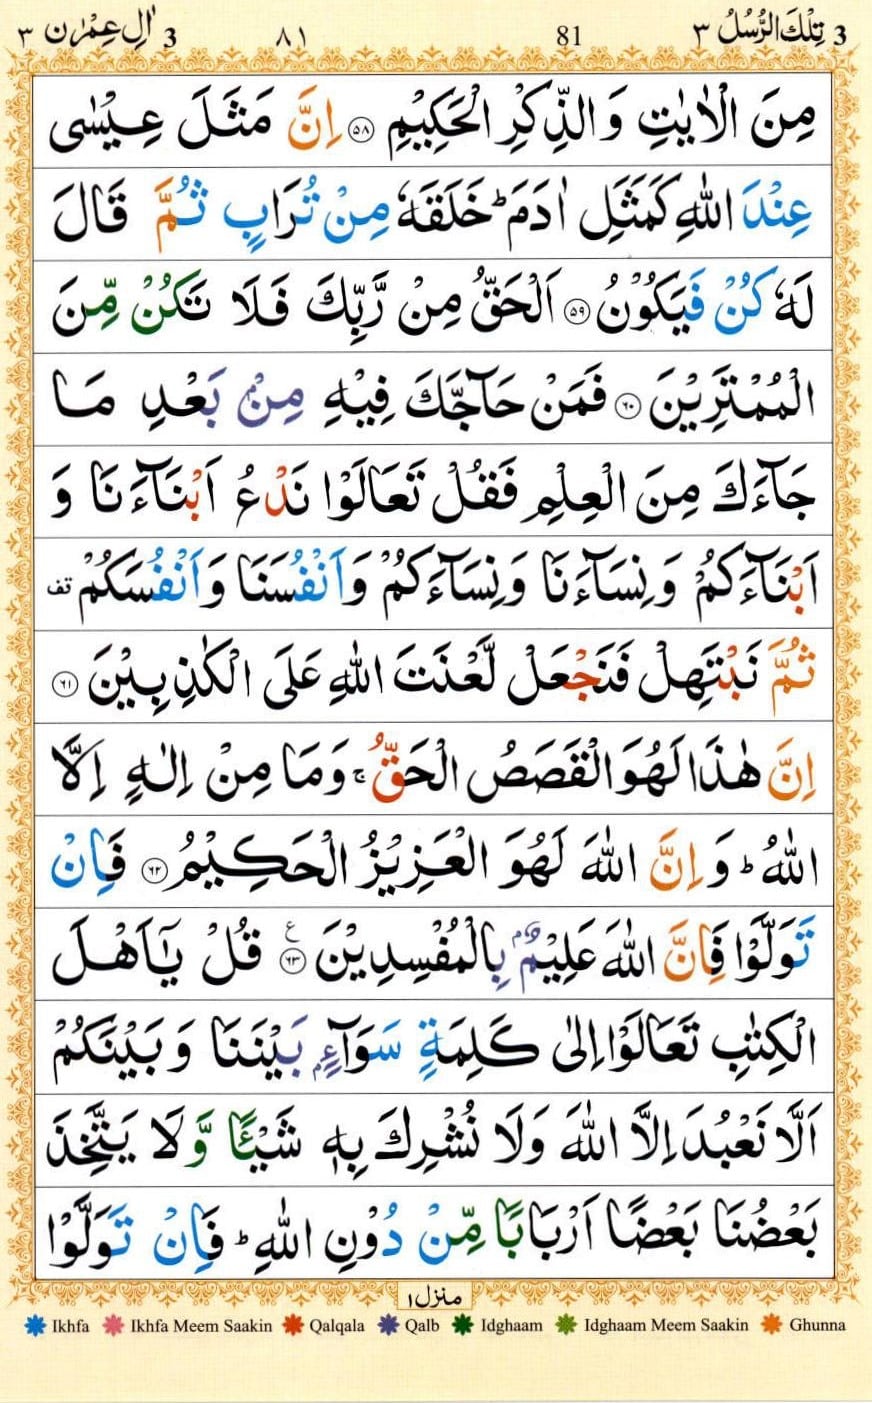 3 تِلْكَ الرُّسُلُ ٣ 81 ٨١ 3 اٰلِ عِمْرٰن ٣
مِنَ الْاٰيٰتِ وَالذِّكْرِ الْحَكِيْمِ ﴿٥٨﴾ اِنَّ مَثَلَ عِيْسٰى
عِنْدَ اللّٰهِ كَمَثَلِ اٰدَمَ ؕ خَلَقَهٗ مِنْ تُرَابٍ ثُمَّ قَالَ
لَهٗ كُنْ فَيَكُوْنُ ﴿٥٩﴾ اَلْحَقُّ مِنْ رَّبِّكَ فَلَا تَكُنْ مِّنَ
الْمُمْتَرِيْنَ ﴿٦٠﴾ فَمَنْ حَآجَّكَ فِيْهِ مِنْۢ بَعْدِ مَا
جَآءَكَ مِنَ الْعِلْمِ فَقُلْ تَعَالَوْا نَدْعُ اَبْنَآءَنَا وَ
اَبْنَآءَكُمْ وَنِسَآءَنَا وَنِسَآءَكُمْ وَاَنْفُسَنَا وَاَنْفُسَكُمْ تف
ثُمَّ نَبْتَهِلْ فَنَجْعَلْ لَّعْنَتَ اللّٰهِ عَلَى الْكٰذِبِيْنَ ﴿٦١﴾
اِنَّ هٰذَا لَهُوَ الْقَصَصُ الْحَقُّ ۚ وَمَا مِنْ اِلٰهٍ اِلَّا
اللّٰهُ ؕ وَاِنَّ اللّٰهَ لَهُوَ الْعَزِيْزُ الْحَكِيْمُ ﴿٦٢﴾ فَاِنْ
تَوَلَّوْا فَاِنَّ اللّٰهَ عَلِيْمٌۢ بِالْمُفْسِدِيْنَ ﴿٦٣﴾ ع قُلْ يٰٓاَهْلَ
الْكِتٰبِ تَعَالَوْا اِلٰى كَلِمَةٍ سَوَآءٍۭ بَيْنَنَا وَبَيْنَكُمْ
اَلَّا نَعْبُدَ اِلَّا اللّٰهَ وَلَا نُشْرِكَ بِهٖ شَيْـًٔا وَّلَا يَتَّخِذَ
بَعْضُنَا بَعْضًا اَرْبَابًا مِّنْ دُوْنِ اللّٰهِ ؕ فَاِنْ تَوَلَّوْا
منزل ١
Ikhfa Ikhfa Meem Saakin Qalqala Qalb Idghaam Idghaam Meem Saakin Ghunna